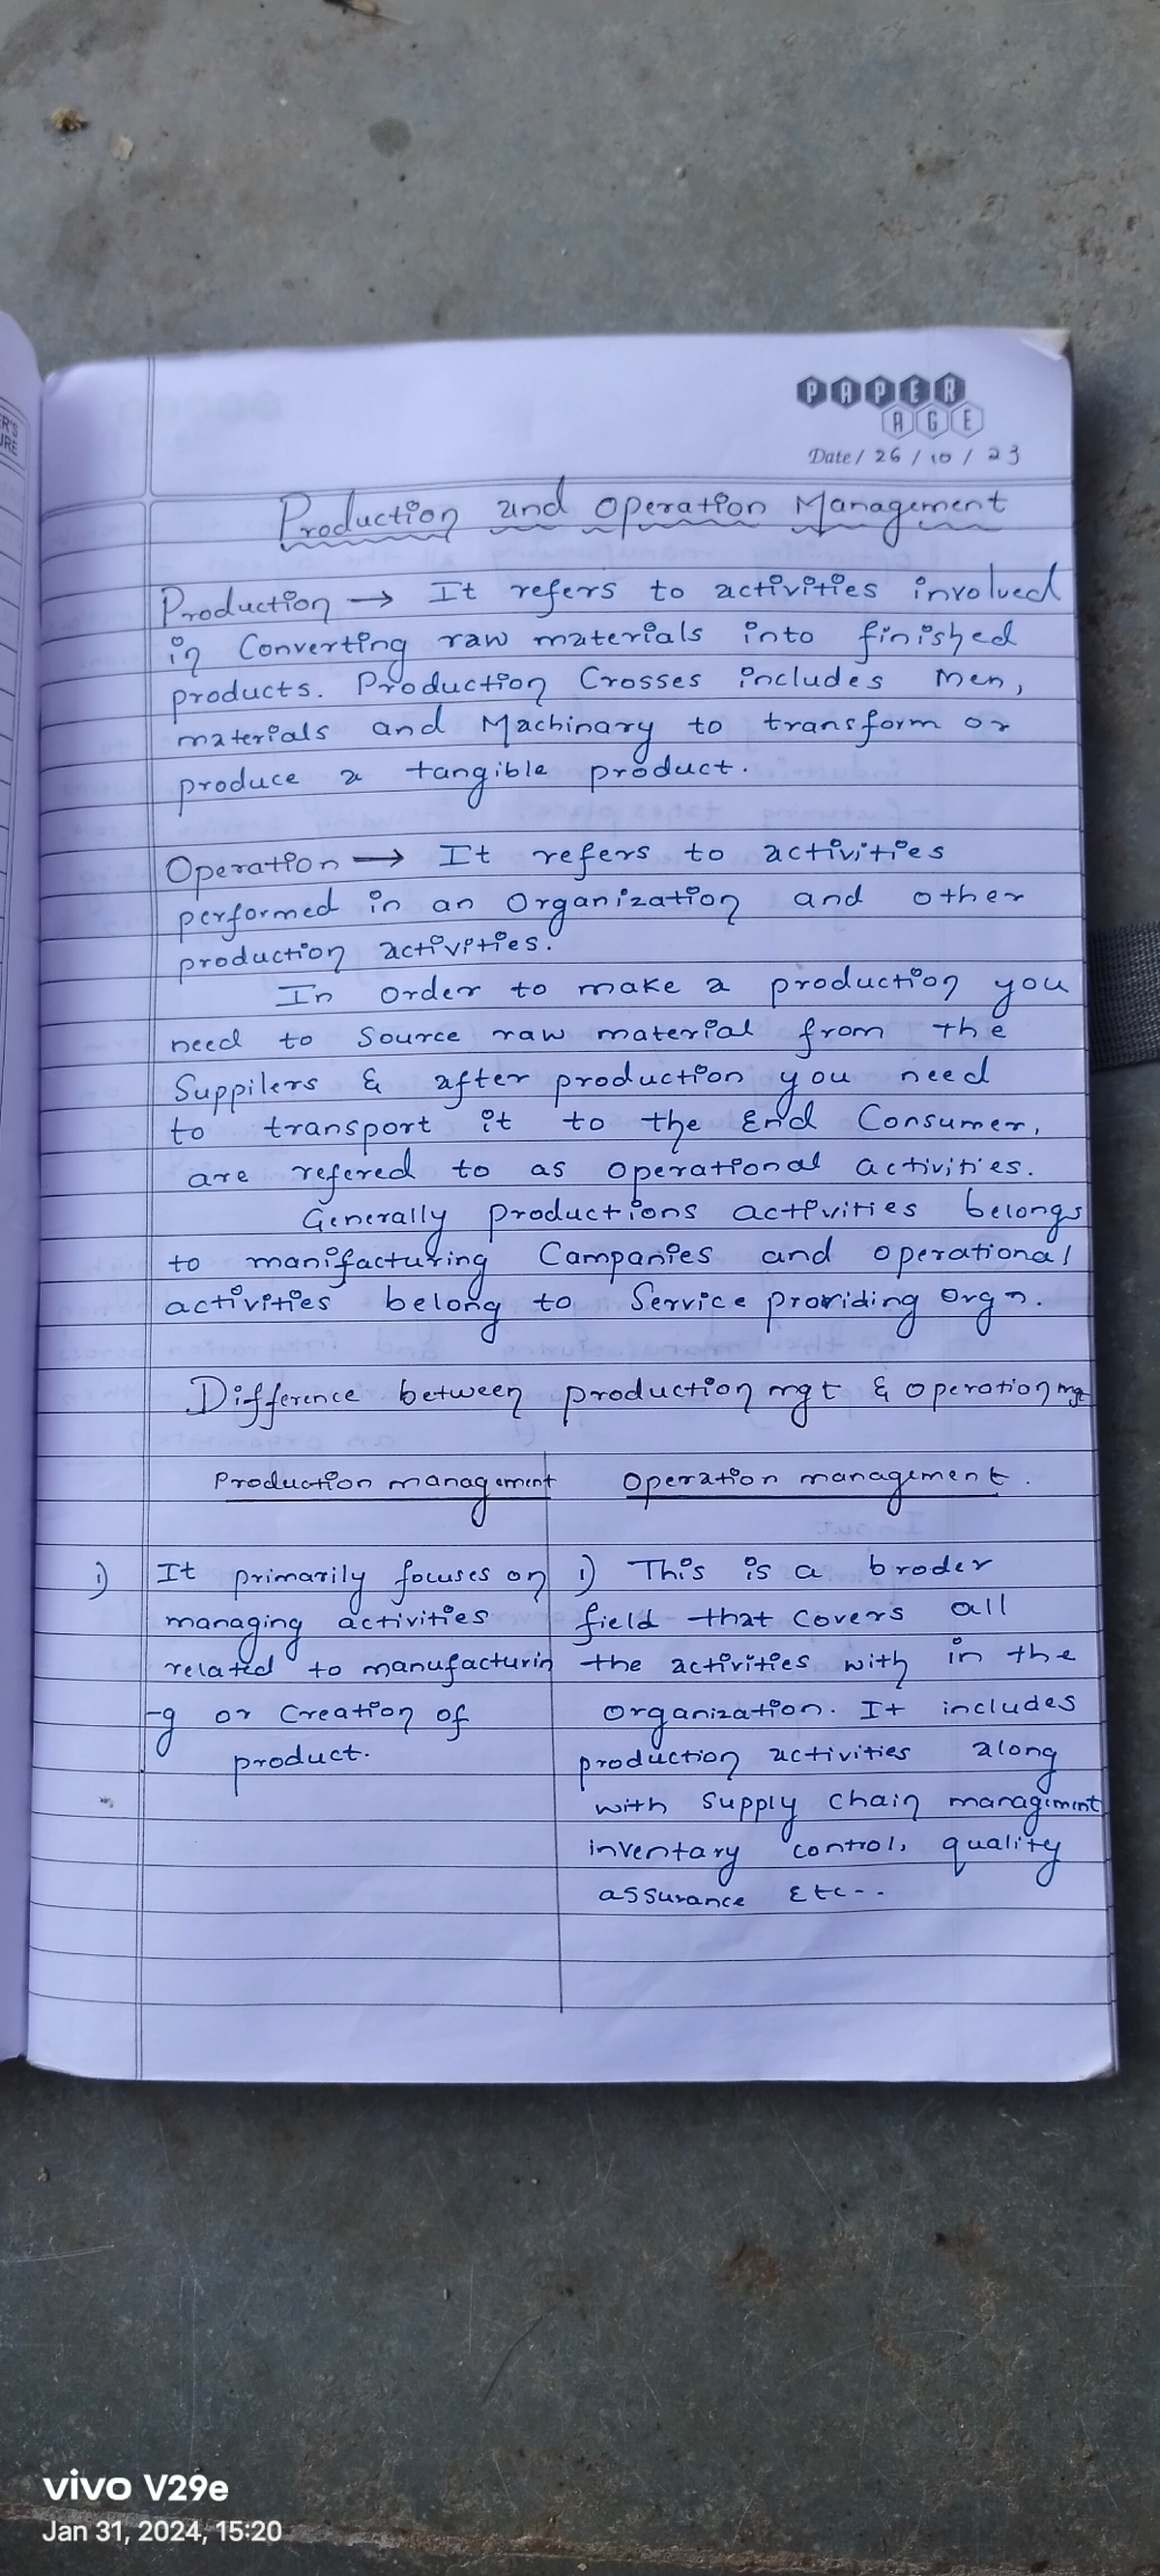 ER'S
URE
PAPER
AGE
Date / 26 / 10 / 23
Production and Operation Management
Production → It refers to activities involved
in Converting raw materials into finished
products. Production Crosses includes men,
materials and Machinary to transform or
produce a tangible product.
Operation → It refers to activities
performed in an Organization and other
production activities.
In order to make a production you
need to Source raw material from the
Suppilers & after production you need
to transport it to the End Consumer,
are refered to as operational activities.
Generally productions activities belongs
to manifacturing Campanies and operational
activities belong to Service providing Orgn.
Difference between production mgt & operation mgt
Production management
i) It primarily focuses on
managing activities
related to manufacturin
-g or Creation of
product.
Operation management.
i) This is a broder
field that covers all
the activities with in the
organization. It includes
production activities along
with supply chain managiment
inventary control, quality
assurance Etc--
vivo V29e
Jan 31, 2024, 15:20